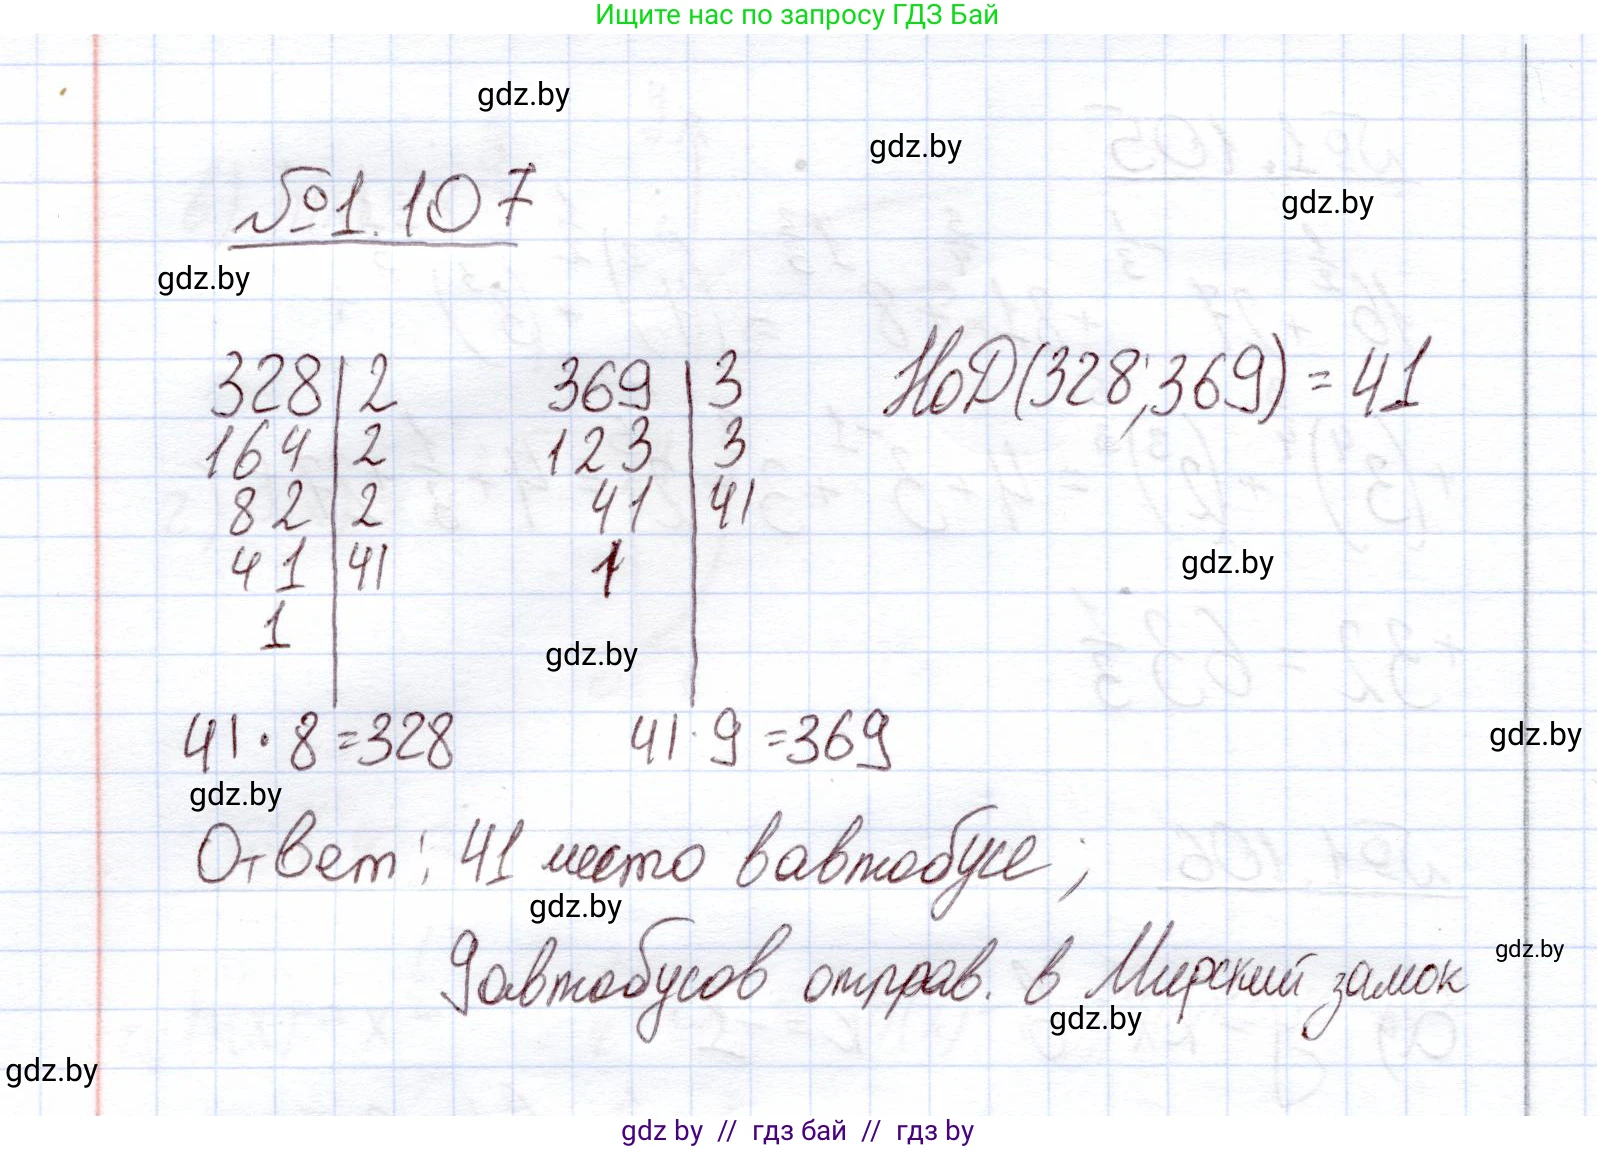 Ищите нас по запросу ГДЗ Бай
gdz.by
gdz.by
№1.107
gdz.by
gdz.by
328 | 2 369 | 3 НоД(328;369) = 41
164 | 2 123 | 3
82 | 2 41 | 41
41 | 41 1
gdz.by
1
gdz.by
41·8=328 41·9=369
gdz.by
gdz.by
Ответ: 41 место в автобусе;
gdz.by
9 автобусов отправ. в Мирский замок
gdz.by
gdz.by
gdz.by
gdz by // гдз бай // гдз by